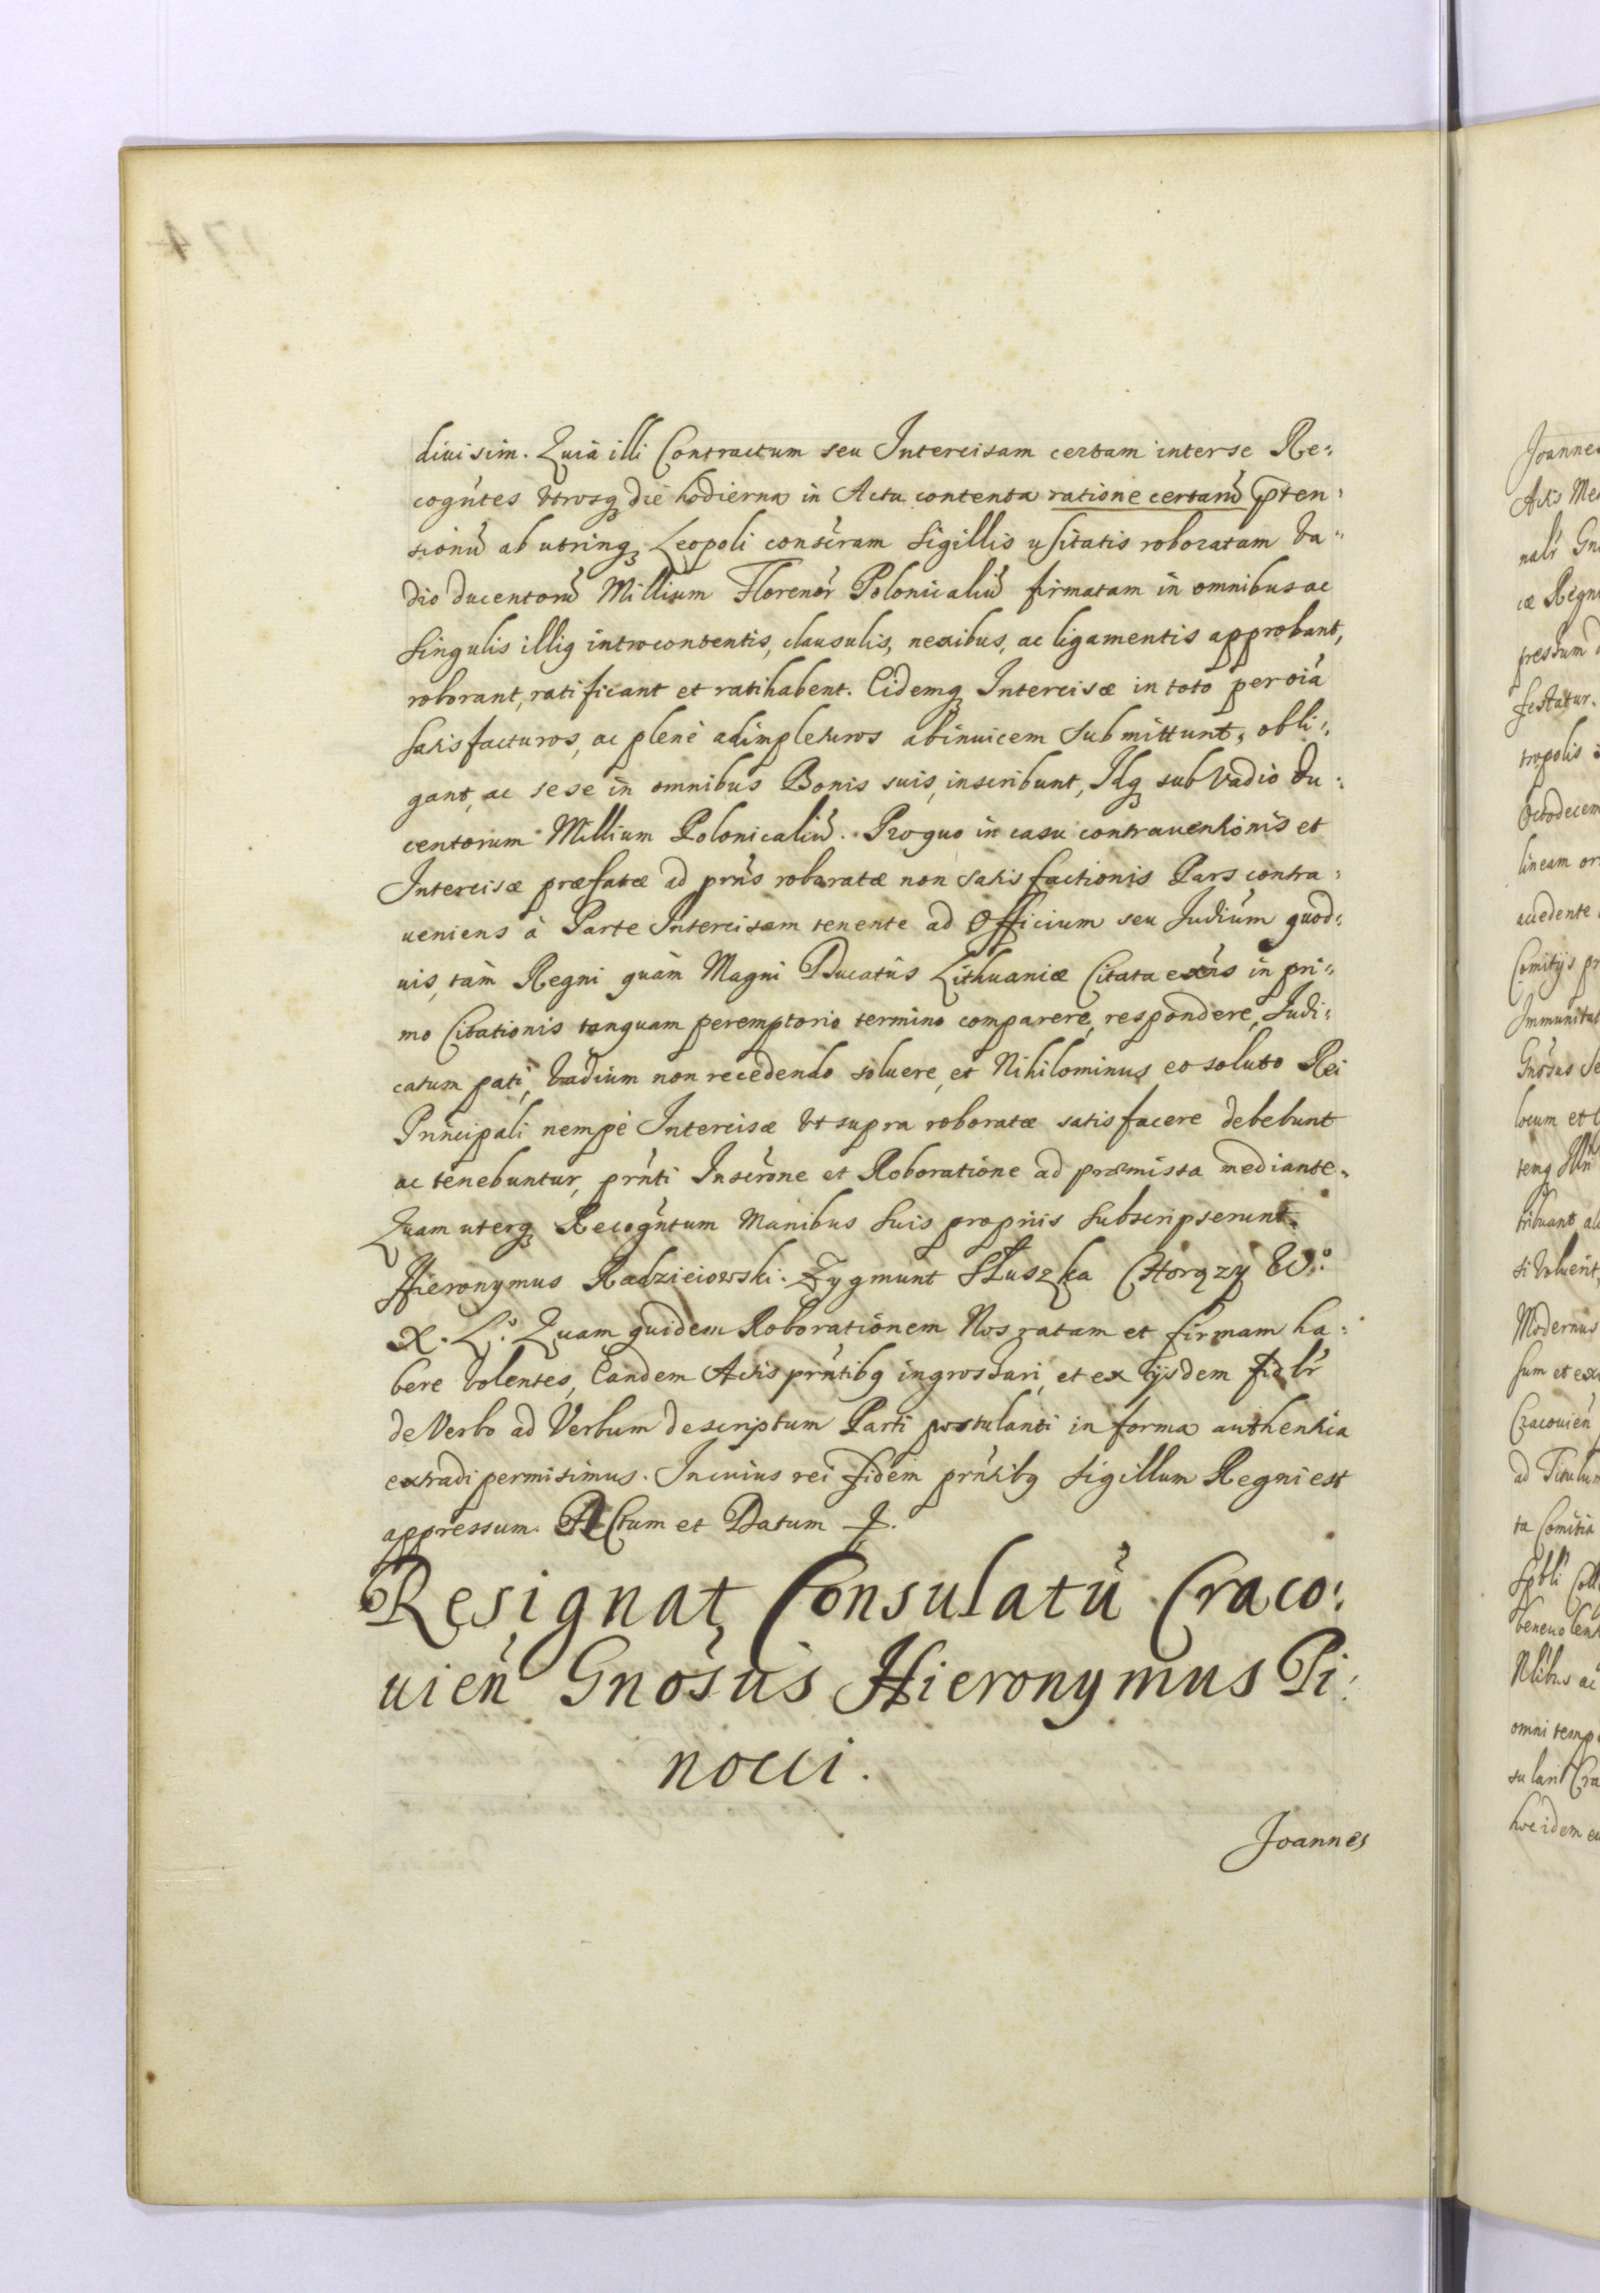 diuisim. Quià illi Contractum seu Intercisam certam interse Re:
cogn̄tes vtrosq die hodierna in Actu contenta ratione certarū p̄ten:
sionū ab utrinq Leopoli conscr̄am Sigillis usitatis roboratam va:
dio ducentorū Millium Florenor̄ Polonicaliū firmatam in omnibus ac
singulis illiq introcontentis, clausulis, nexibus, ac ligamentis approbant,
roborant, ratificant et ratihabent. Eidemq Intercisæ in toto per oīa
satisfacturos, ac plenè adimpleturos abinuicem submittunt, obli:
gant, ac sese in omnibus Bonis suis, inscribunt, Idq sub Vadio du:
centorum Millium Polonicaliū. Proquo in casu contrauentionis et
Intercisæ præfatæ ad prn̄s roboratæ non satisfactionis Pars contra:
ueniens à Parte Intercisam tenente ad Officium seu Judiūm quod:
uis, tàm Regni quàm Magni Ducatûs Lithuaniæ Citata exn̄s in pri:
mo Citationis tanquam peremptorio termino comparere, respondere, Judi:
catum pati, Vadium non recedendo soluere, et Nihilominus eo soluto Rei
Principali nempè Intercisæ vt supra roboratæ satisfacere debebunt
ac tenebuntur, prn̄ti Inscr̄one et Roboratione ad præmissa mediante.
Quam uterq Recogn̄tum Manibus suis proprijs subscripserunt.
Hieronymus Radzieiowski. Zygmunt Słuszka Chorązy W:°
X. L:° Quam quidem Roborationem Nos ratam et firmam ha:
bere volentes, Eandem Actis prn̄tibq ingrossari, et ex ijsdem fidlr̄
de Verbo ad Verbum descriptum Parti postulanti in forma authentica
extradi permisimus. In cuius rei fidem prn̄tibq Sigillum Regni est
appressum. Actum et Datum
Resignat Consulatū Craco:
uien̄ Gnōsus Hieronymus Pi:
nocci.
Joannes